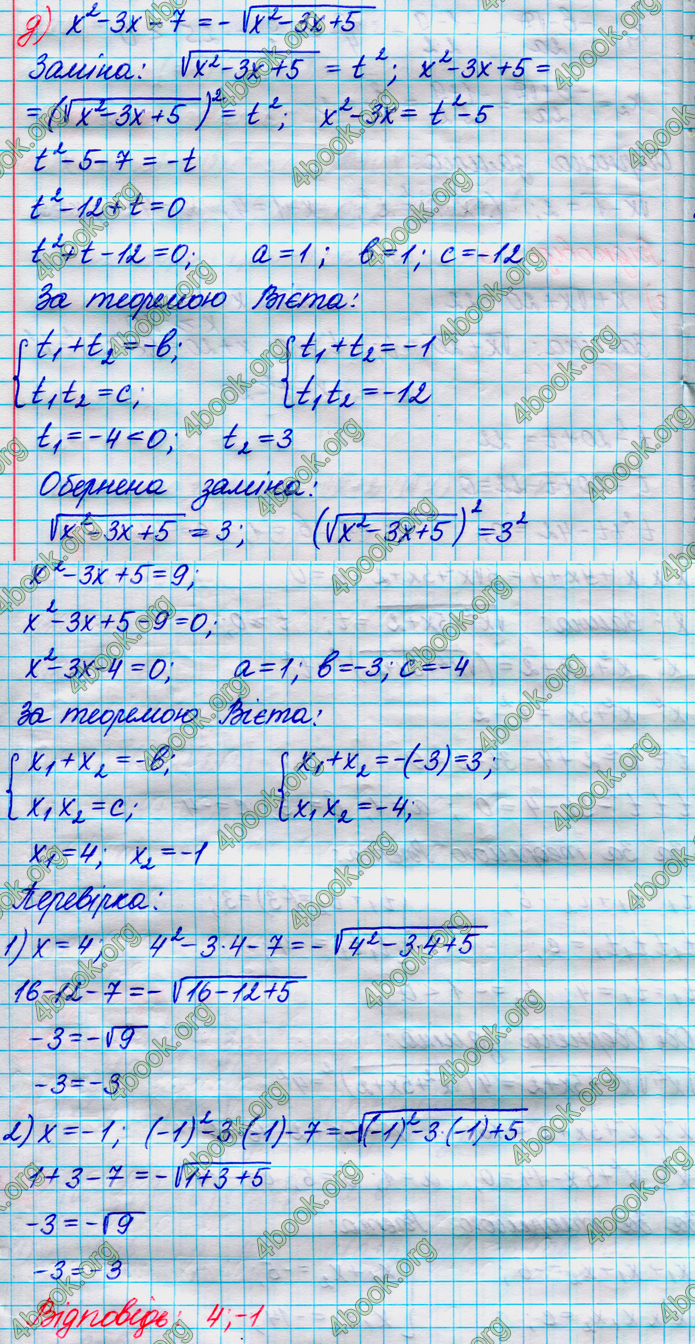 д) x²-3x-7=-√(x²-3x+5)
Заміна: √(x²-3x+5) = t²; x²-3x+5=
=(√(x²-3x+5))²=t²; x²-3x=t²-5
t²-5-7=-t
t²-12+t=0
t²+t-12=0; a=1; в=1; c=-12
За теоремою Вієта:
{t₁+t₂=-в; {t₁+t₂=-1
t₁t₂=c; t₁t₂=-12
t₁=-4<0; t₂=3
Обернена заміна:
√(x²-3x+5)=3; (√(x²-3x+5))²=3²
x²-3x+5=9;
x²-3x+5-9=0;
x²-3x-4=0; a=1; в=-3; c=-4
За теоремою Вієта:
{x₁+x₂=-в; {x₁+x₂=-(-3)=3;
x₁x₂=c; x₁x₂=-4;
x₁=4; x₂=-1
Перевірка:
1) x=4; 4²-3·4-7=-√(4²-3·4+5)
16-12-7=-√(16-12+5)
-3=-√9
-3=-3
2) x=-1; (-1)²-3·(-1)-7=-√((-1)²-3·(-1)+5)
1+3-7=-√(1+3+5)
-3=-√9
-3=-3
Відповідь: 4;-1
4book.org